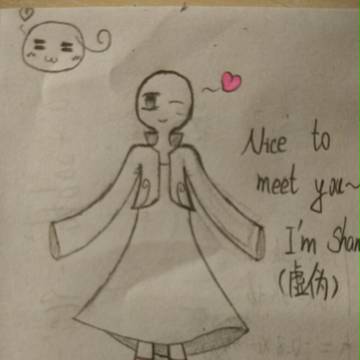 Nice to
meet you~
I'm
(虚伪)